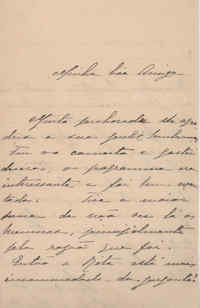 Minha boa Amiga
Muito penhorada lhe agra
deço a sua gentil lembrança
o concerto e
o programma era
interessante e foi bem exe
cutado. a maior
pena de não ver lá os
meninos, principalmente
pela razão que foi.
Então a está mais
incommodada da garganta?